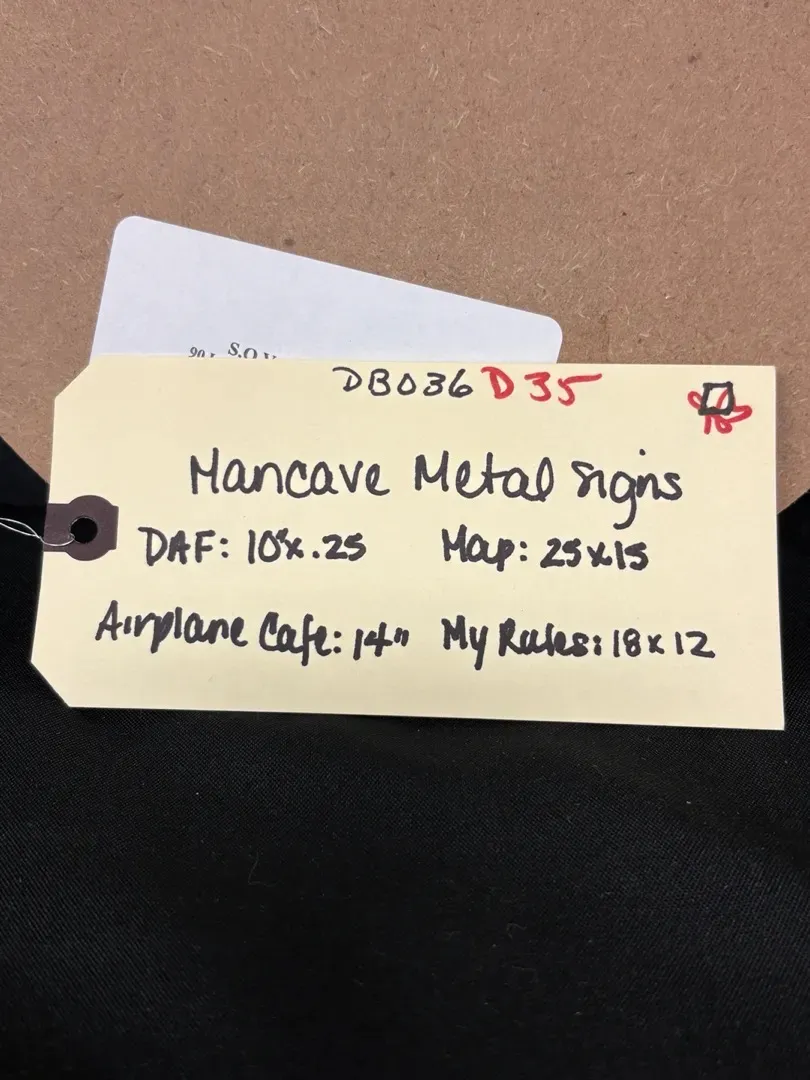 S.O.V
DB036 D35
Mancave Metal Signs
DAF: 10"x.25 Map: 25x15
Airplane Cafe: 14" My Rules: 18x12